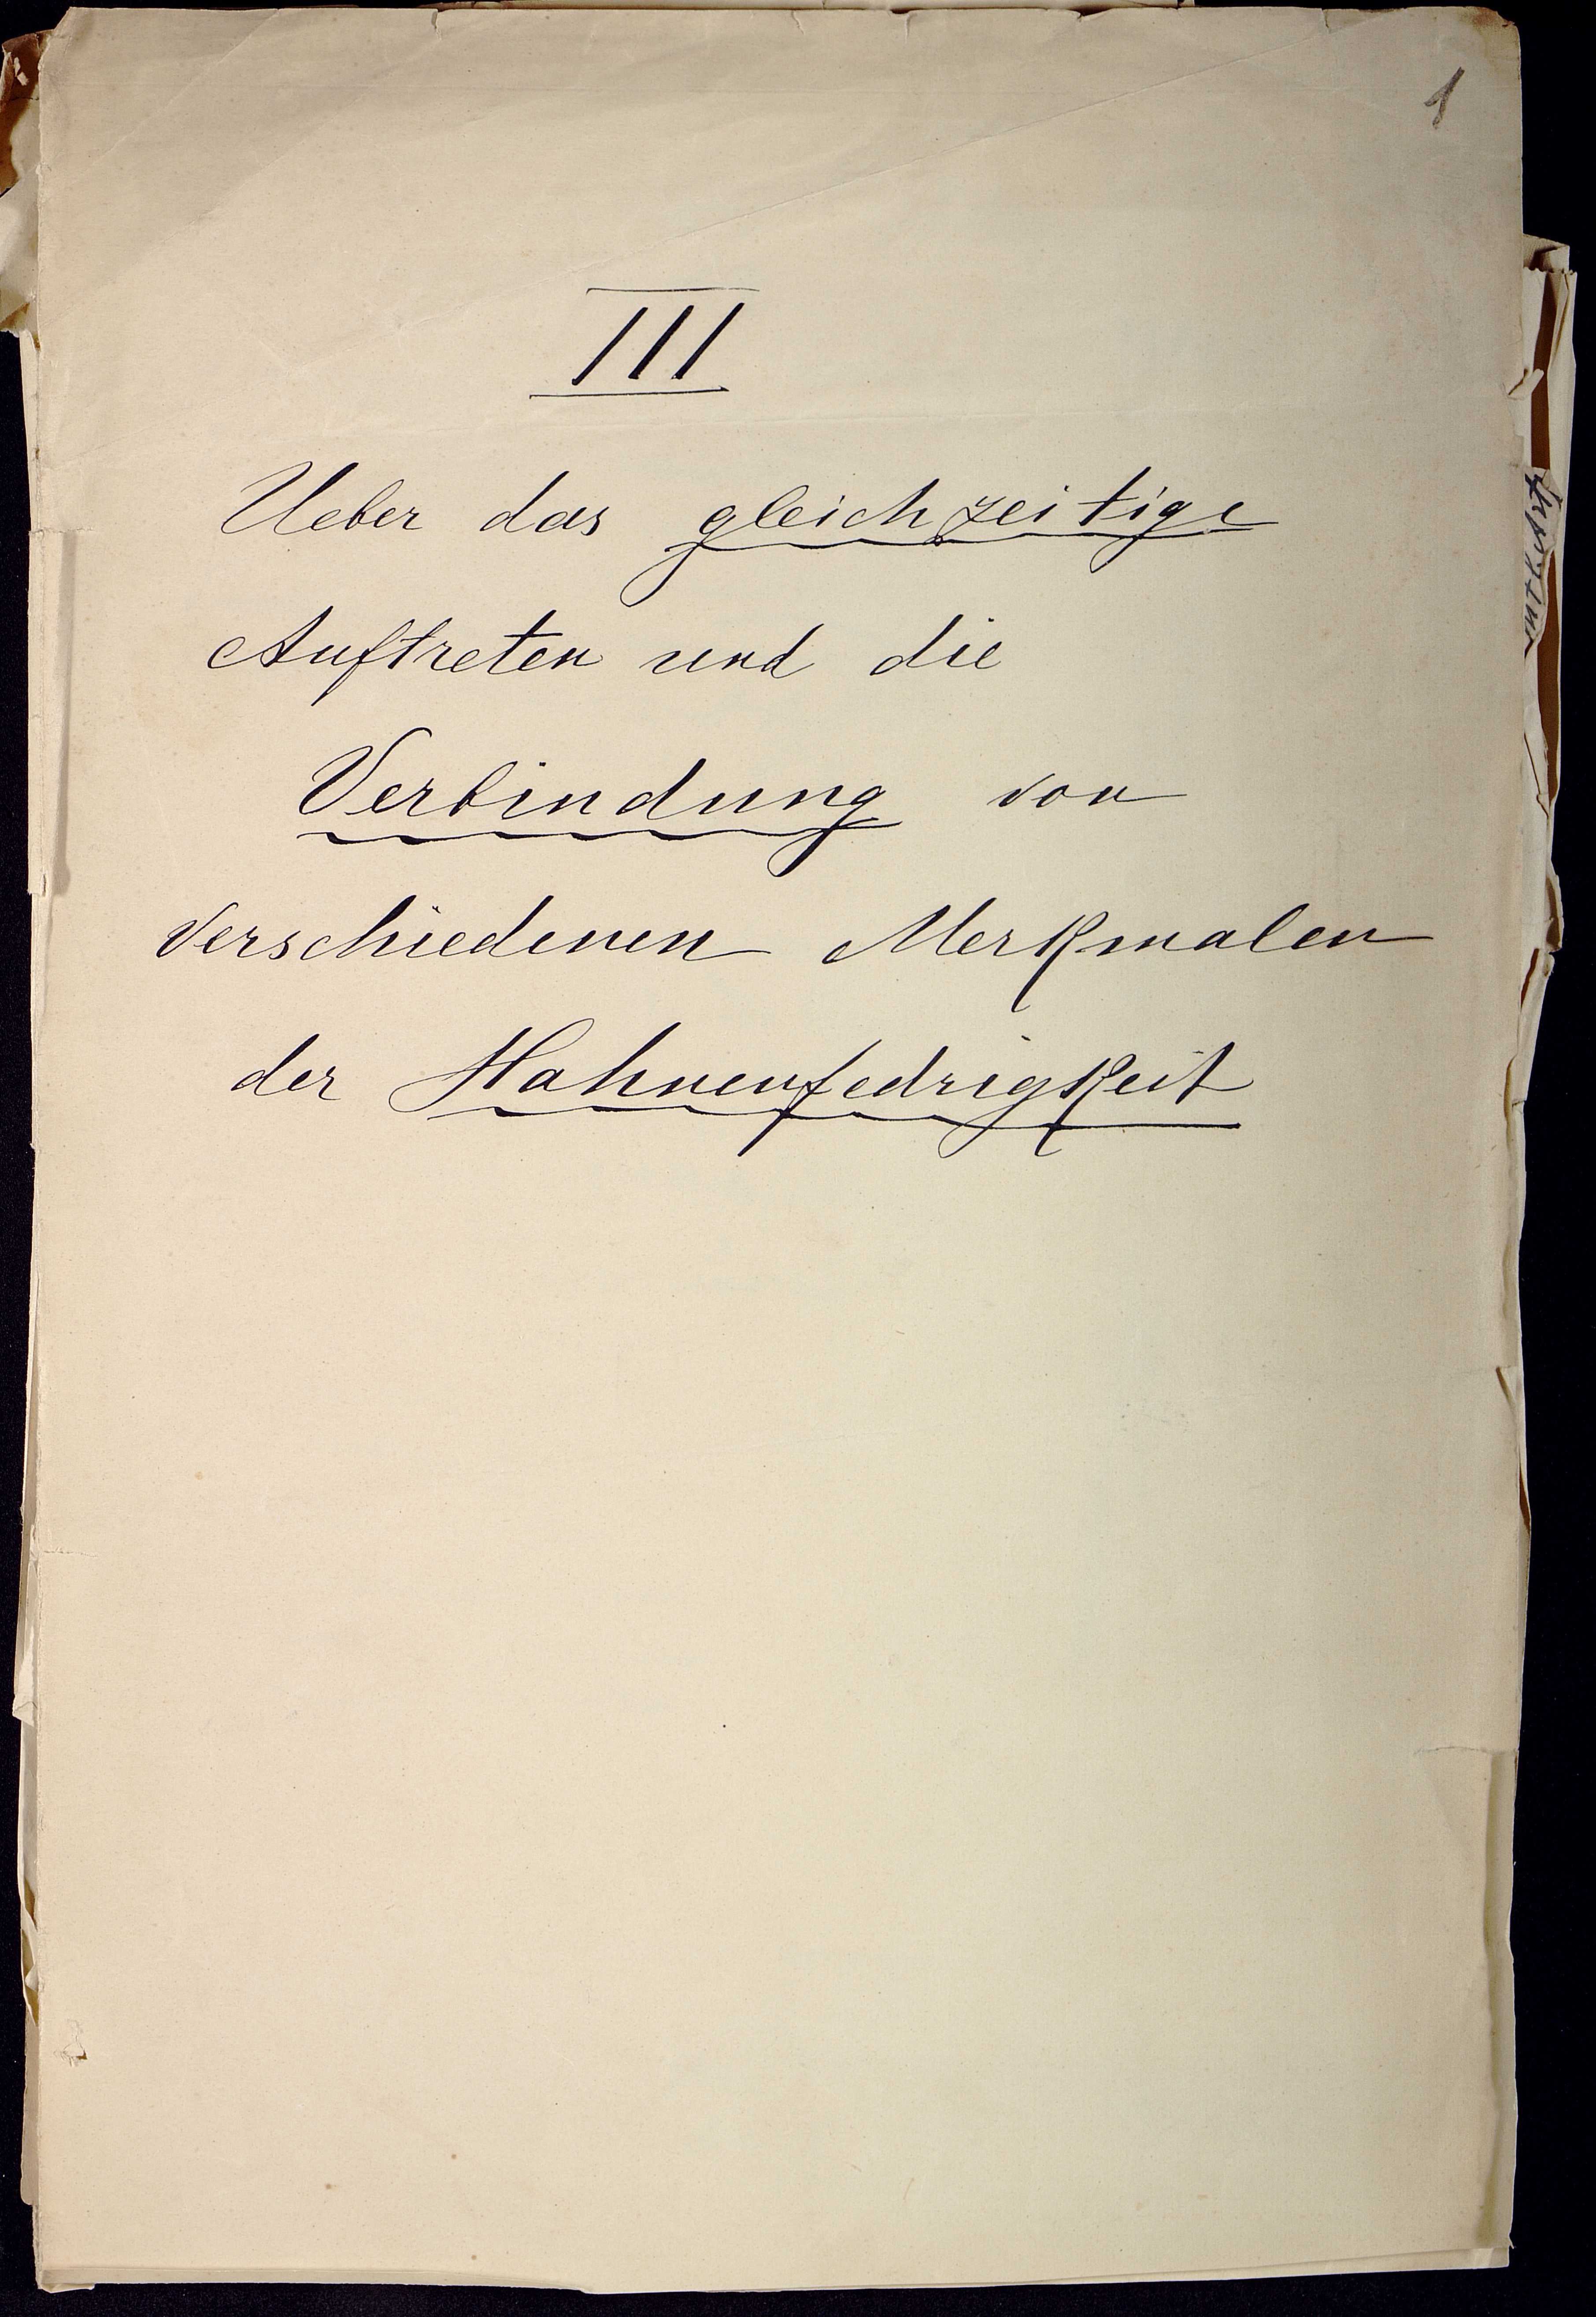 1
III
Ueber das gleichzeitige
Auftreten und die
Verbindung von
verschiedenen Merkmalen
der Hahnenfedrigkeit